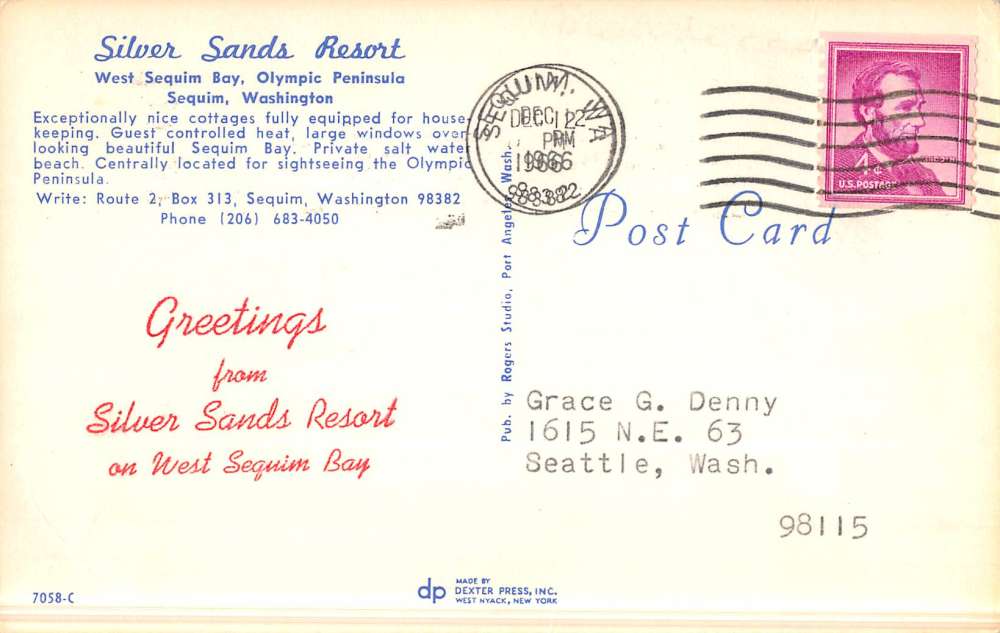 Silver Sands Resort
West Sequim Bay, Olympic Peninsula
Sequim, Washington
Exceptionally nice cottages fully equipped for house-
keeping. Guest controlled heat, large windows over-
looking beautiful Sequim Bay. Private salt water
beach. Centrally located for sightseeing the Olympic
Peninsula.
Write: Route 2, Box 313, Sequim, Washington 98382
Phone (206) 683-4050
Greetings
from
Silver Sands Resort
on West Sequim Bay
7058-C
dp
MADE BY
DEXTER PRESS, INC.
WEST NYACK, NEW YORK
Pub. by Rogers Studio, Port Angeles, Wash.
SEQUIM, WA
DEC 12
PM
1966
98382
U.S. POSTAGE
Post Card
Grace G. Denny
1615 N.E. 63
Seattle, Wash.
98115